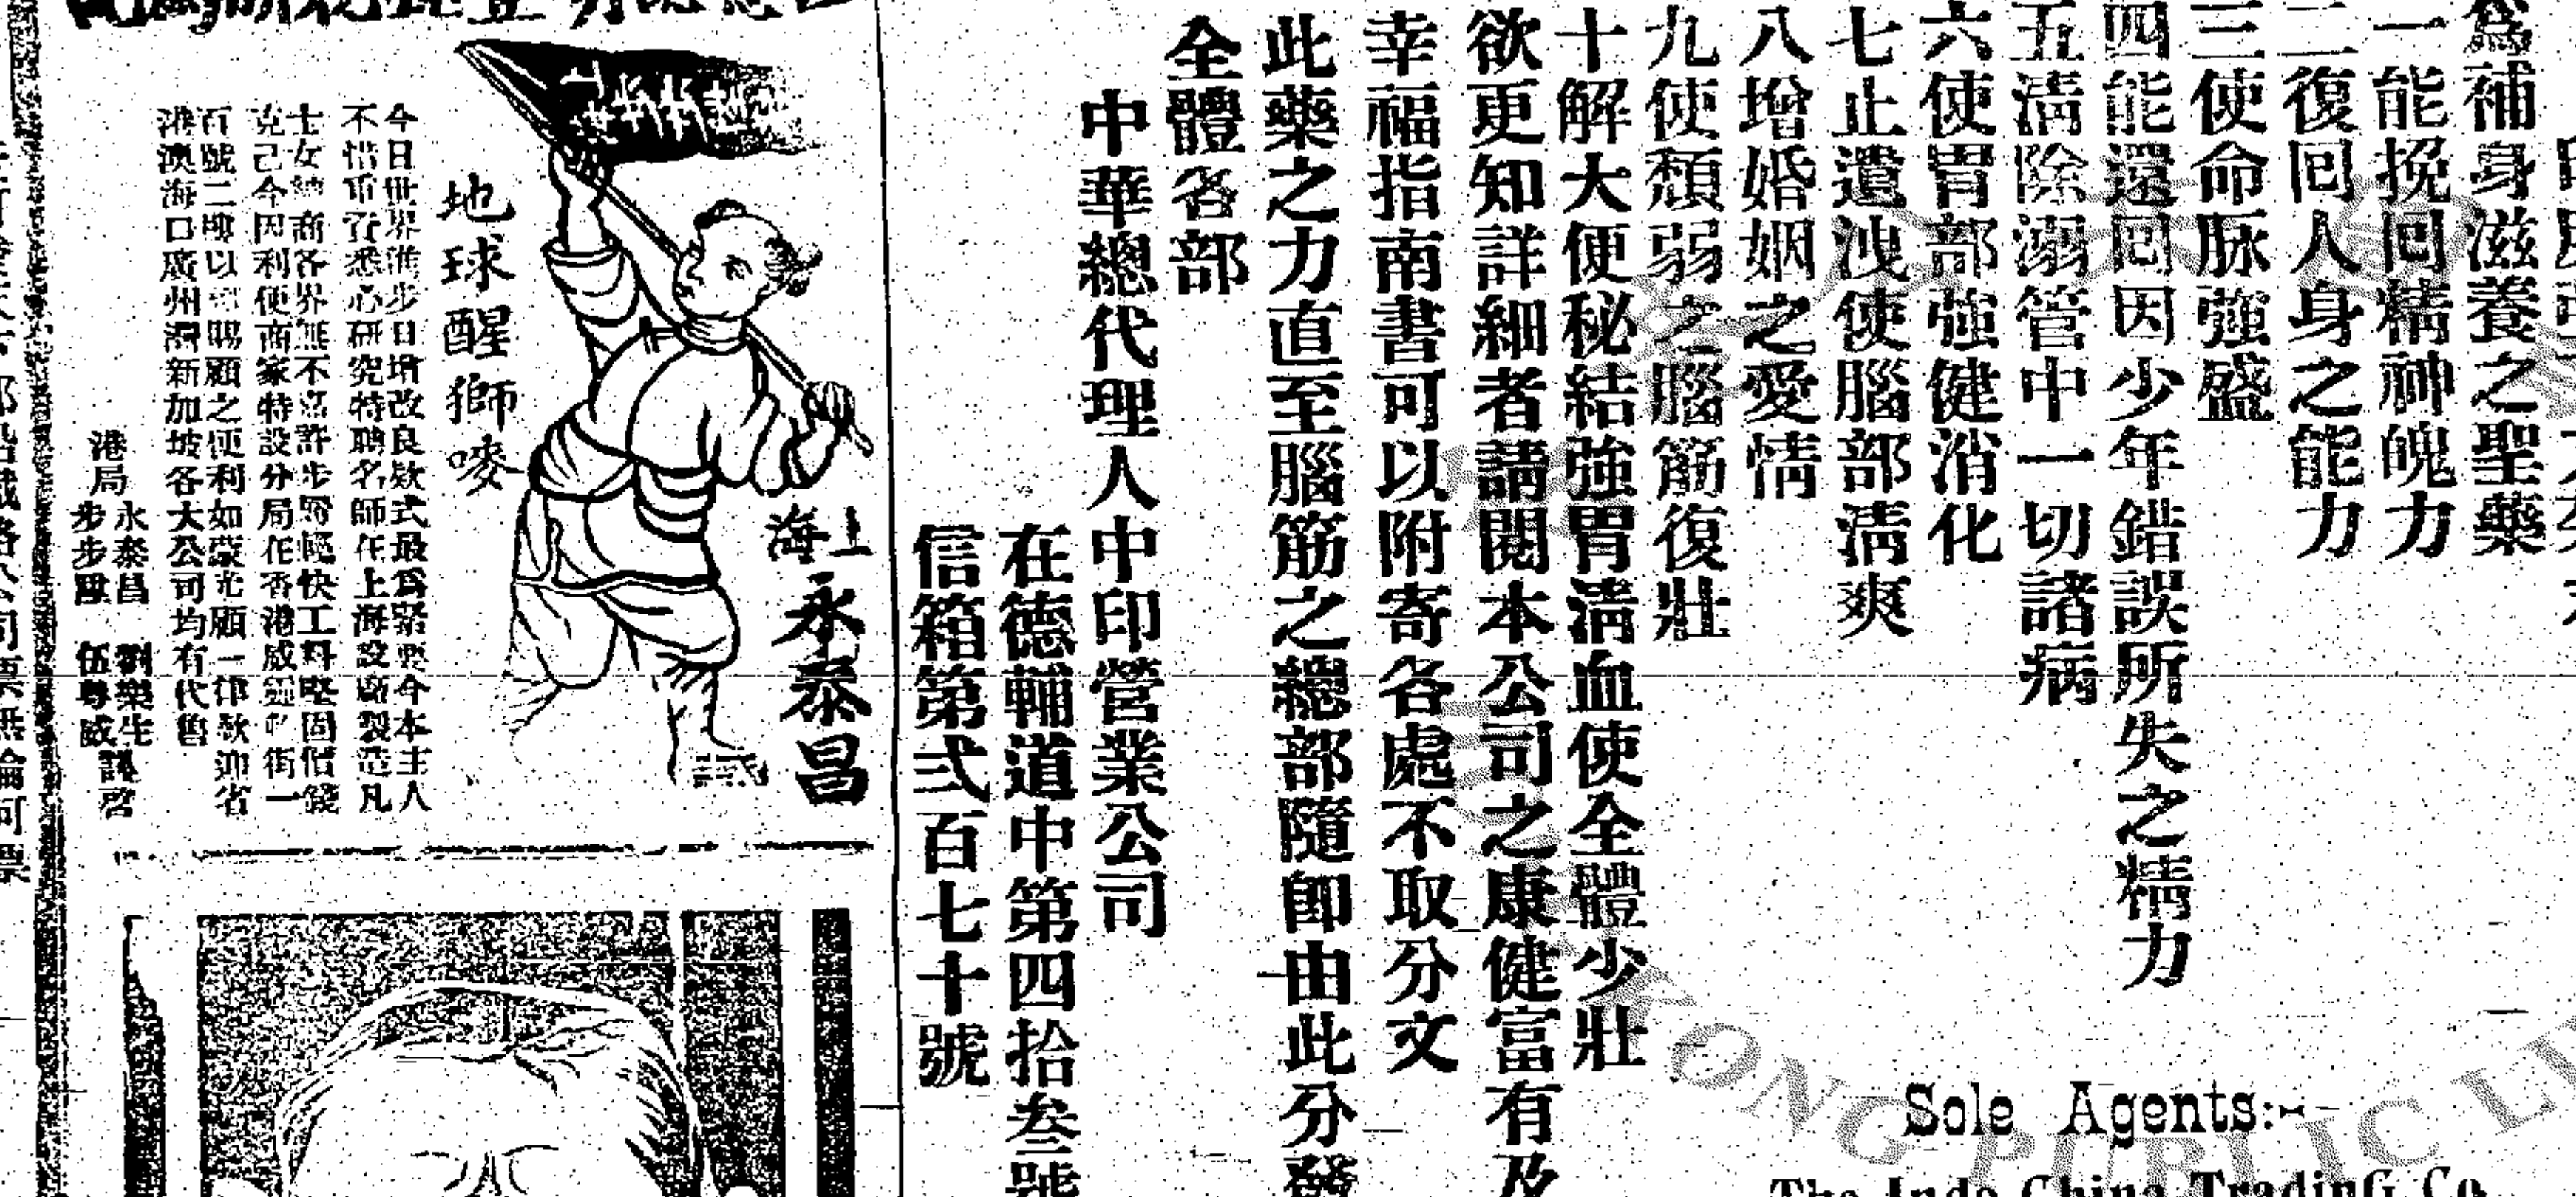 為補身滋養之聖藥
一能挽回精神魄力
二復回人身之能力
三使命脉強盛
四能還回因少年錯誤所失之精力
五淸除溺管中一切諸病
六使胃部強健消化
七止遺洩使腦部淸爽
八增婚姻之愛情
九使頹弱之腦筋復壯
十解大便秘結強胃淸血使全體少壯
欲更知詳細者請閱本公司之康健富有及
幸福指南書可以附寄各處不取分文
此藥之力直至腦筋之總部隨卽由此分發
全體各部
中華總代理人中印營業公司
在德輔道中第四拾叁號
信箱第弍百七十號
Sole Agents:-
The Indo China Trading Co.
HONG KONG PUBLIC LI
上海
永泰昌
地球醒獅嘜
今日世界進步日增改良欵式最爲緊要今本主人
不惜重資悉心研究特聘名師在上海設廠製造凡
士女紳商各界無不嘉許步履輕快工料堅固價錢
克己今因利便商家特設分局在香港威靈頓街一
百號二樓以 賜顧之便利如蒙光顧一律歡迎省
港澳海口廣州灣新加坡各大公司均有代售
港局 永泰昌 劉樂生
步步陞 伍粤威 謹啓